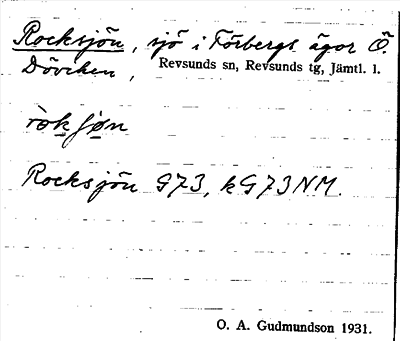 Rocksjön, sjö i Förbergs ägor Ö.
Döviken, Revsunds sn, Revsunds tg, Jämtl. l.
ròk ʃøn
Rocksjön G73, kG73NM.
O. A. Gudmundson 1931.